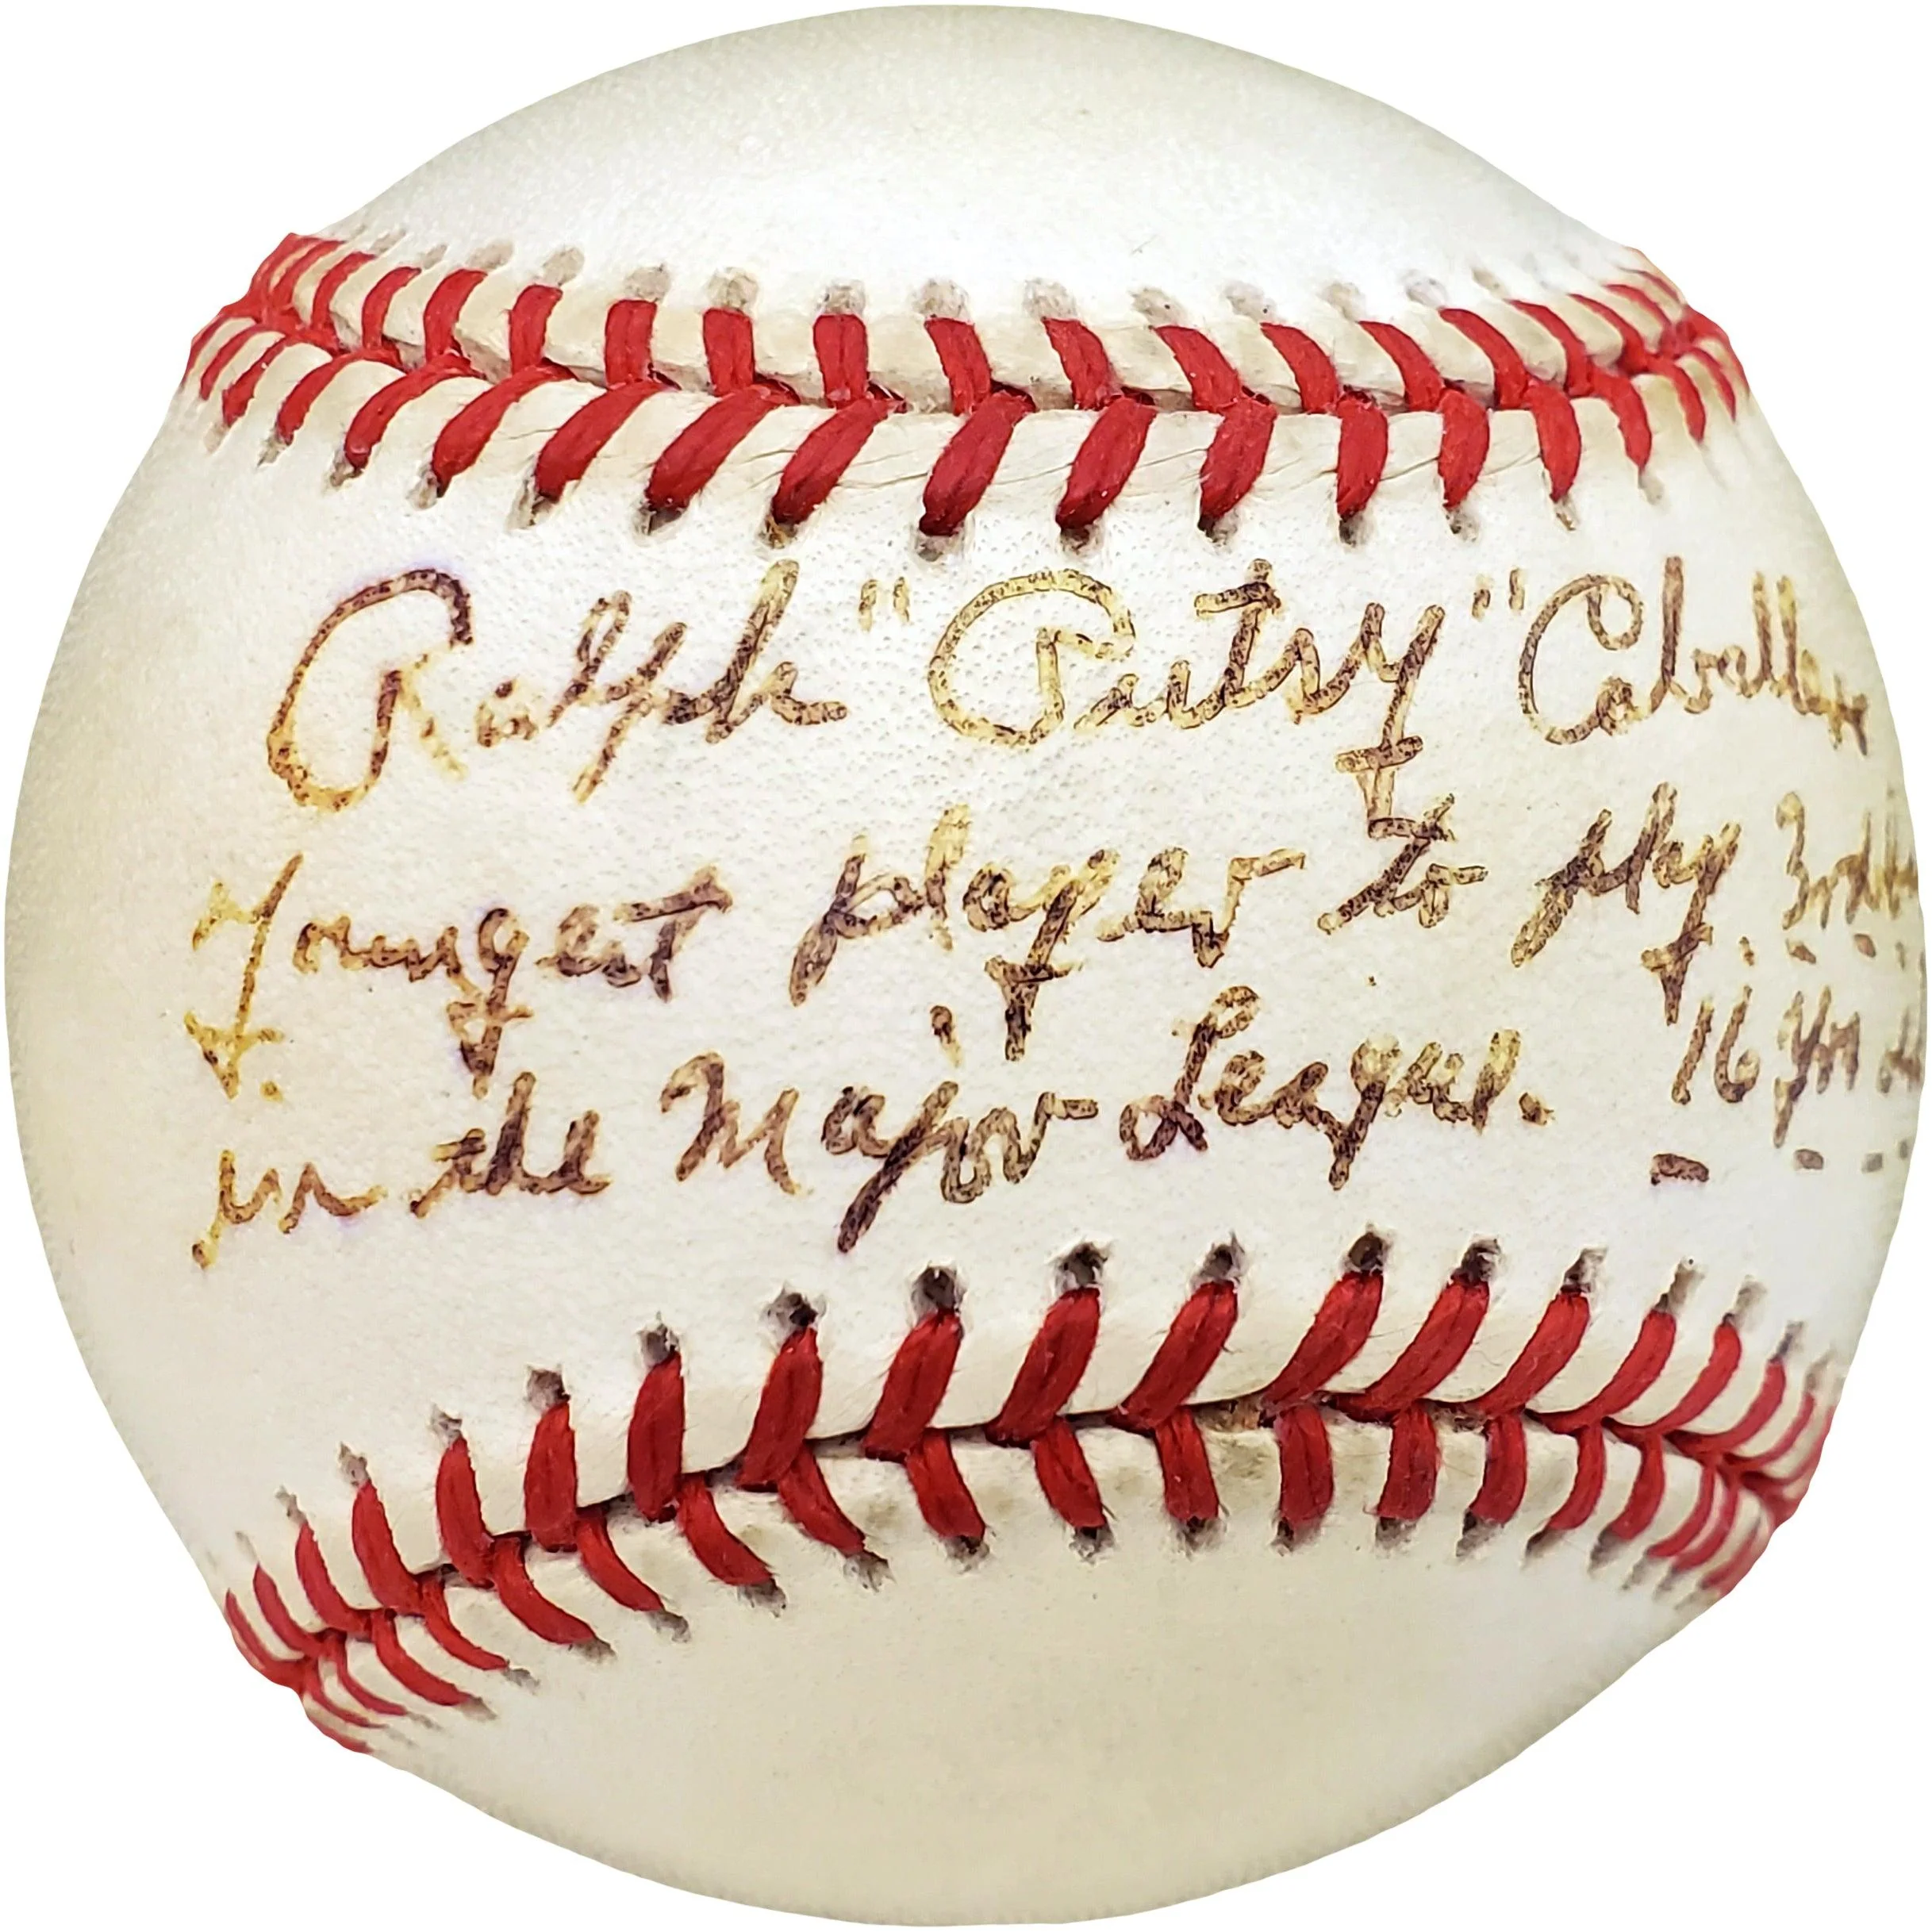 Ralph "Putsy" Caballero
Youngest player to play 3rd
in the Major League. 16 yrs